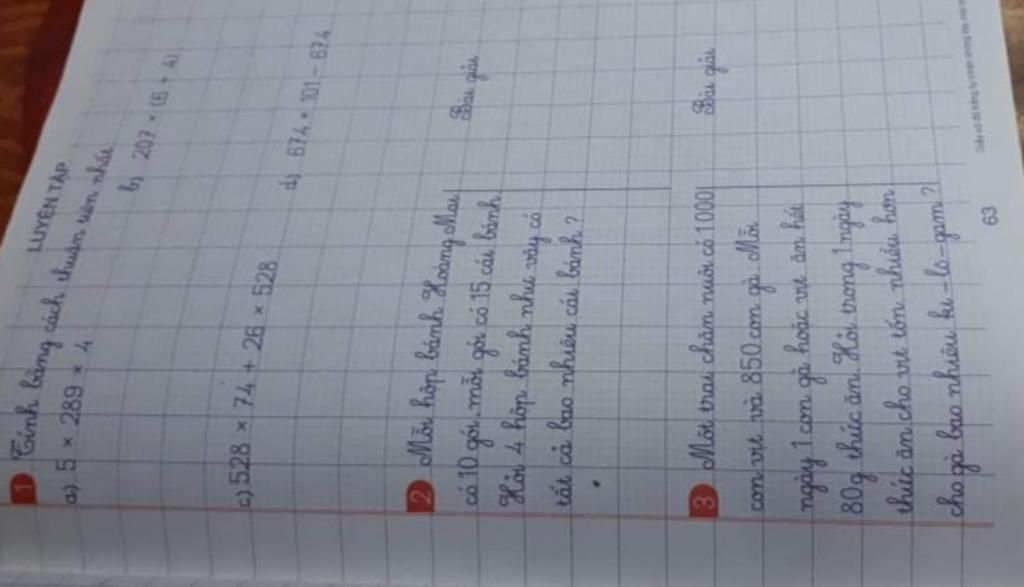 LUYỆN TẬP
1 Tính bằng cách thuận tiện nhất
a) 5 × 289 × 4
b) 207 × (6 + 4)
c) 528 × 74 + 26 × 528
d) 674 × 101 - 674
2 Mỗi hộp bánh Hoàng Mai
có 10 gói, mỗi gói có 15 cái bánh.
Hỏi 4 hộp bánh như vậy có
tất cả bao nhiêu cái bánh?
Bài giải
3 Một trại chăn nuôi có 1000
con vịt và 850 con gà. Mỗi
ngày 1 con gà hoặc vịt ăn hết
80g thức ăn. Hỏi trong 1 ngày
thức ăn cho vịt tốn nhiều hơn
cho gà bao nhiêu ki-lô-gam?
Bài giải
63